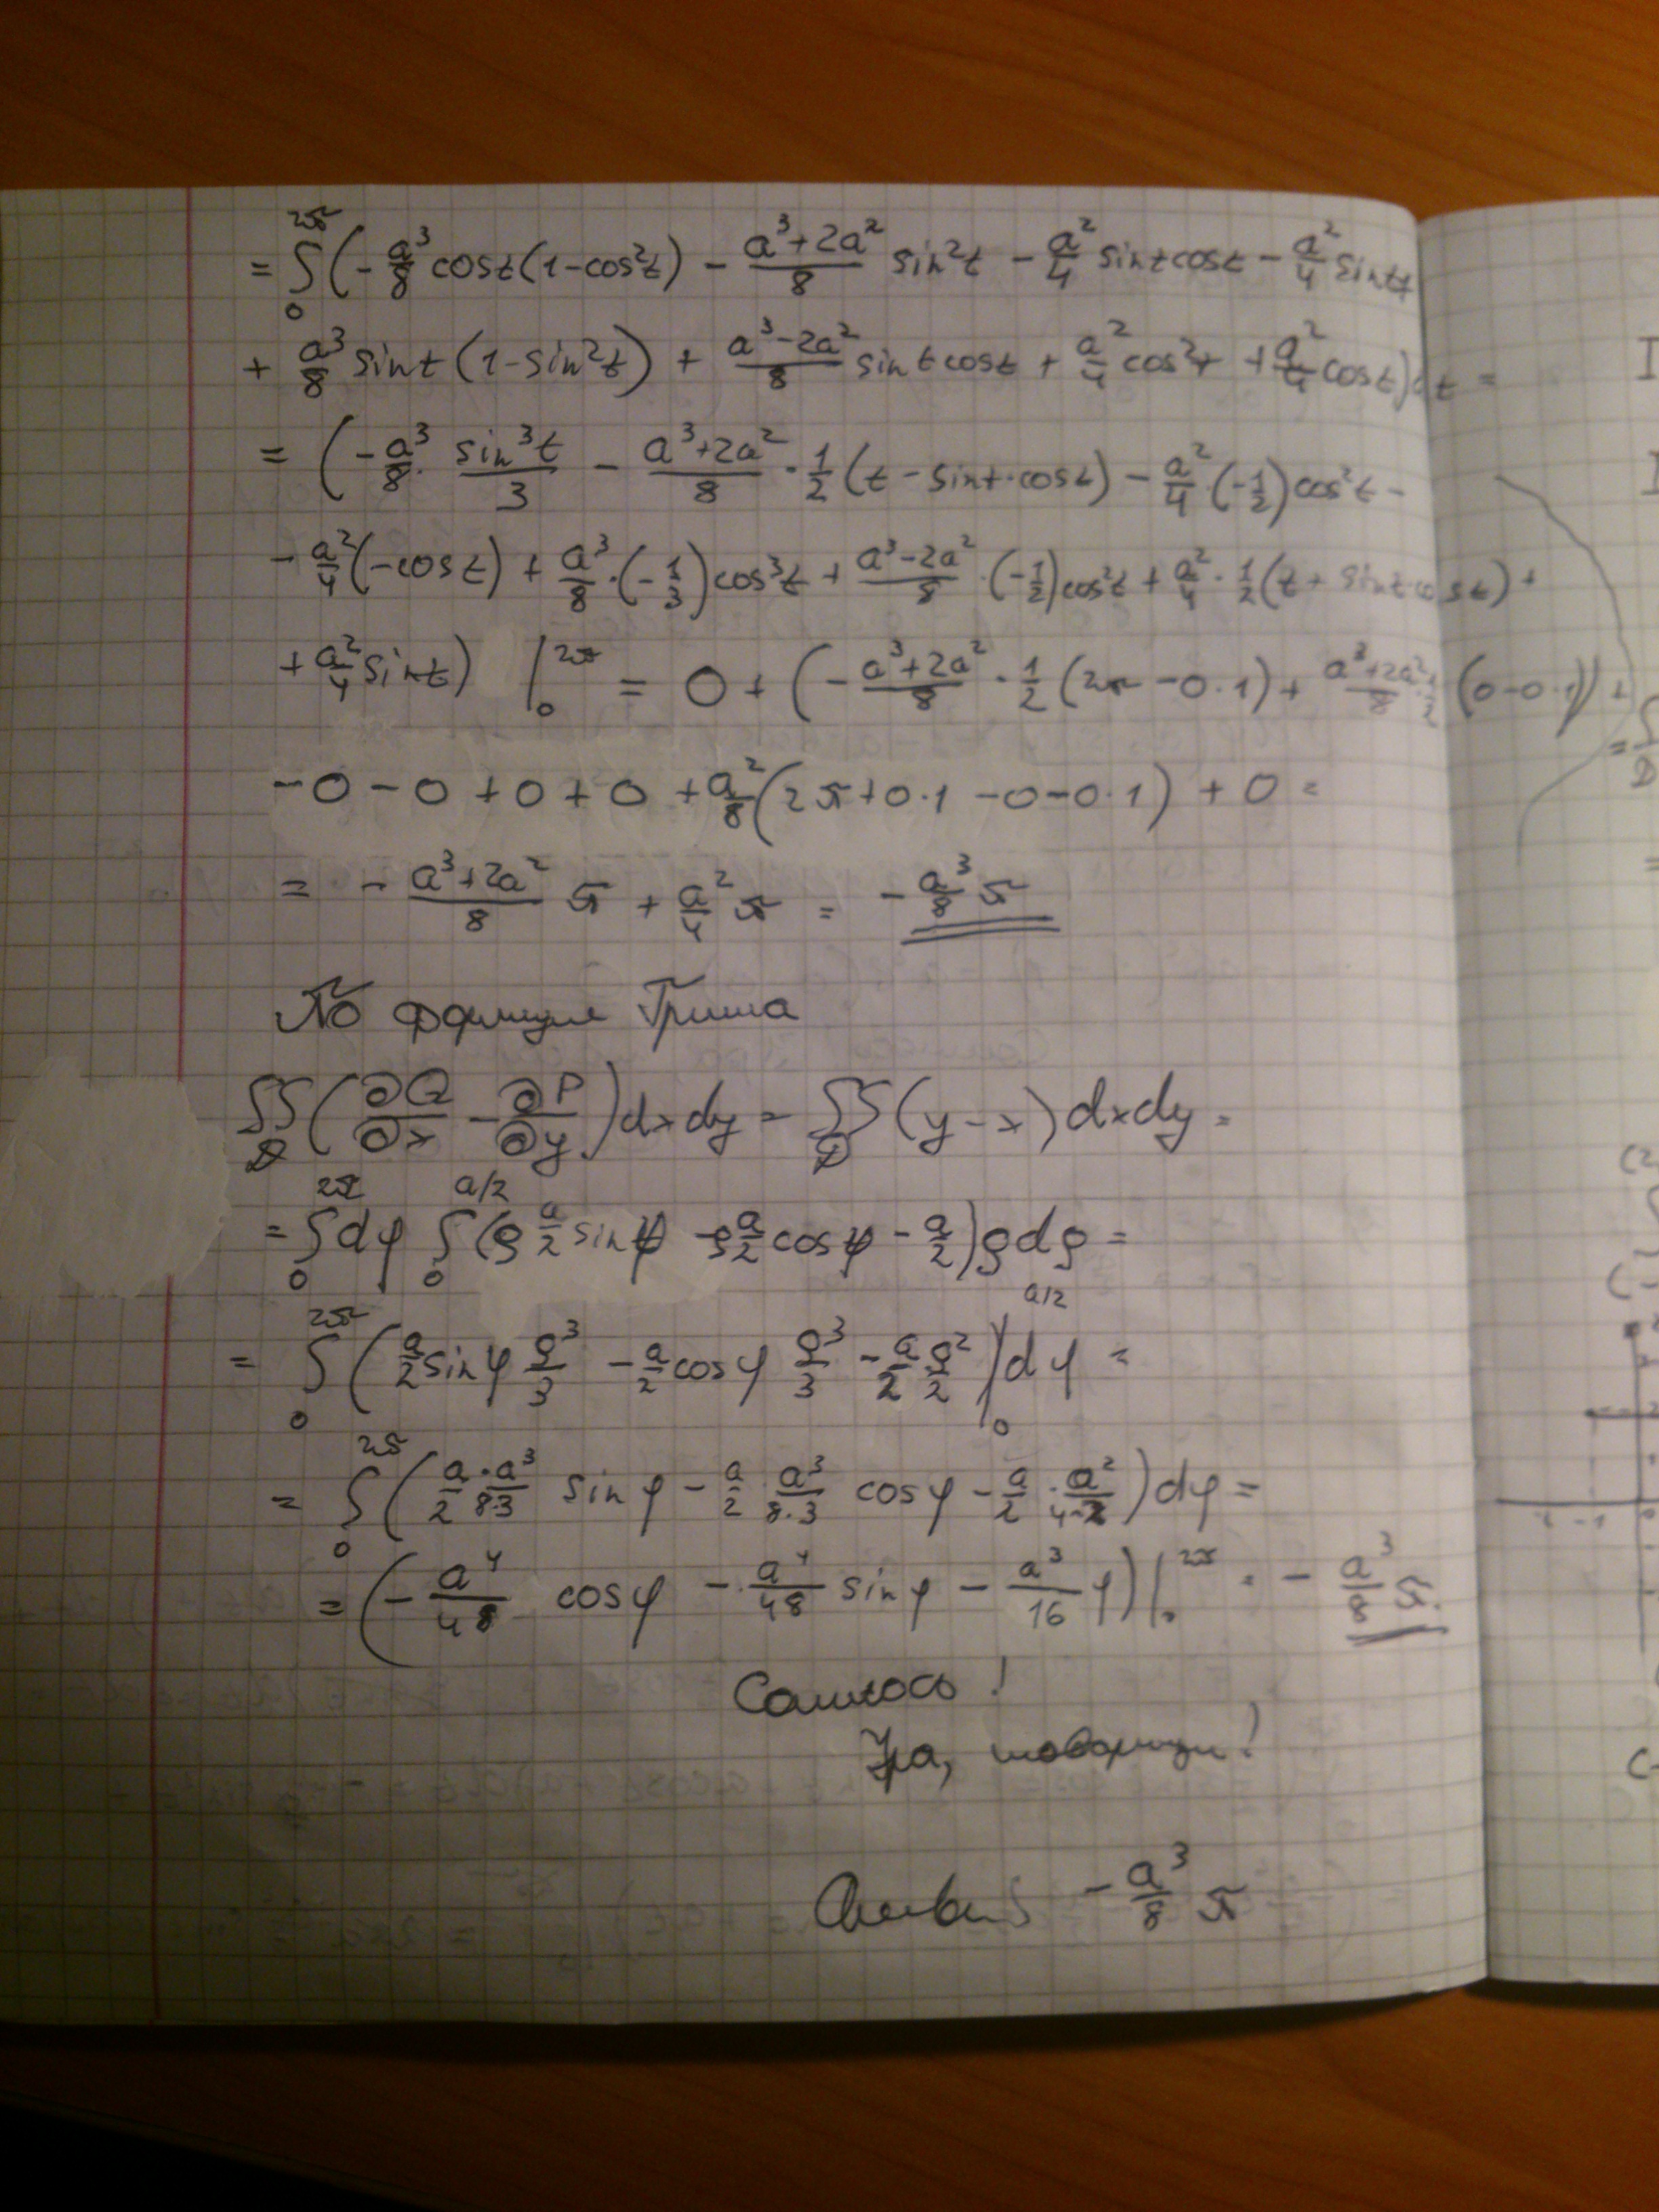 = ∫₀^{2π} (-a³/8 cost(1-cos²t) - (a³+2a²)/8 sin²t - a²/4 sintcost - a²/4 sint+
+ a³/8 sint(1-sin²t) + (a³-2a²)/8 sintcost + a²/4 cos²t + a²/4 cost)dt =
= (-a³/8 · sin³t/3 - (a³+2a²)/8 · 1/2 (t - sint·cost) - a²/4 · (-1/2)cos²t -
- a²/4(-cost) + a³/8 · (-1/3)cos³t + (a³-2a²)/8 · (-1/2)cos²t + a²/4 · 1/2(t + sint·cost) +
+ a²/4 sint) |₀^{2π} = 0 + (-(a³+2a²)/8 · 1/2 (2π - 0·1) + (a³+2a²)/8 · 1/2 (0-0·1)) +
- 0 - 0 + 0 + 0 + a²/8 (2π+0·1 - 0 - 0·1) + 0 =
= - (a³+2a²)/8 π + a²/4 π = - a³/8 π
По формуле Грина
∬_D (∂Q/∂x - ∂P/∂y)dxdy = ∬_D (y-x)dxdy =
= ∫₀^{2π} dφ ∫₀^{a/2} (ρ a/2 sinφ - ρ a/2 cosφ - a/2)ρdρ =
= ∫₀^{2π} (a/2 sinφ ρ³/3 - a/2 cosφ ρ³/3 - a/2 ρ²/2)|₀^{a/2} dφ =
= ∫₀^{2π} (a/2 · a³/8·3 sinφ - a/2 · a³/8·3 cosφ - a/2 · a²/4·2)dφ =
= (- a⁴/48 cosφ - a⁴/48 sinφ - a³/16 φ)|₀^{2π} = - a³/8 π.
Сошлось!
Ура, товарищи!
Ответ: - a³/8 π